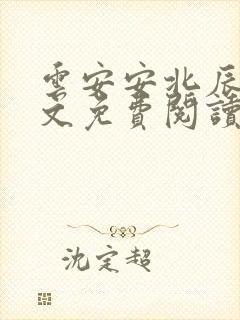 雲安安北辰
文免費閱讀
沈定超